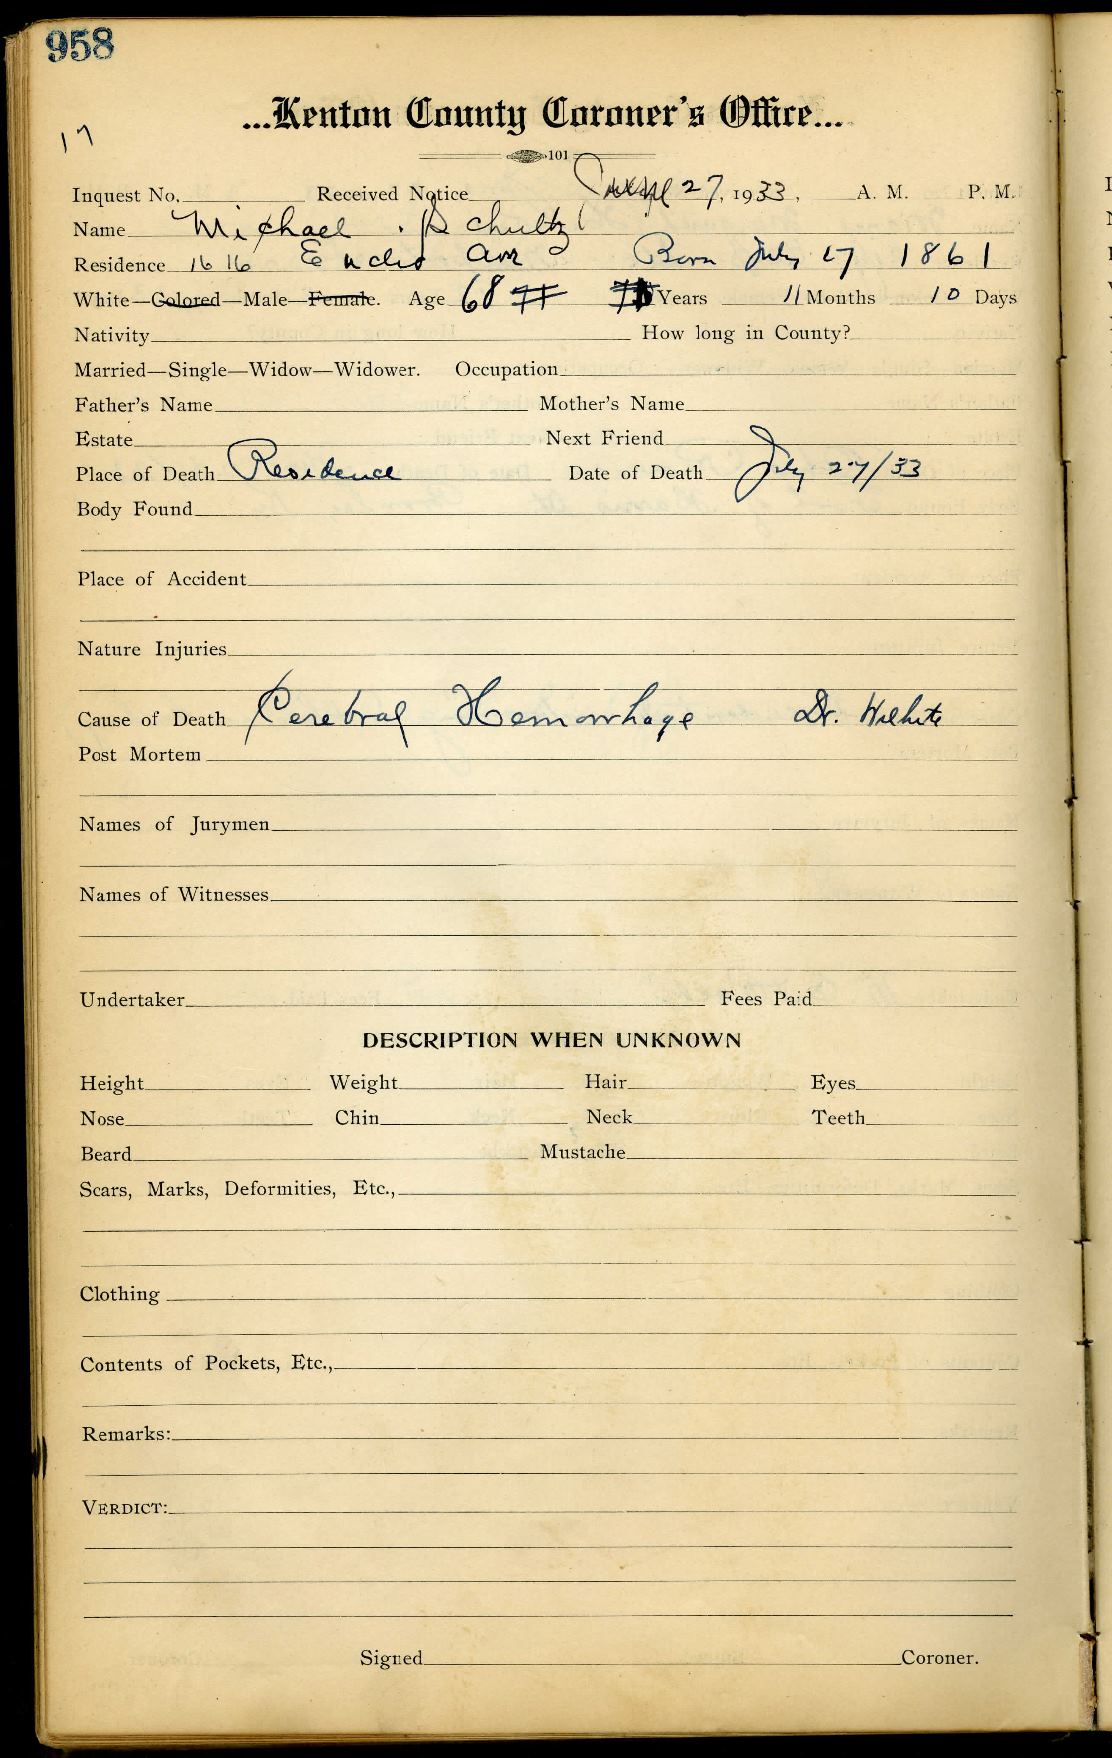 958
...Kenton County Coroner's Office...
17
101
Inquest No. Received Notice 27, 1933, A. M. P. M.
Name Michael Schultz
Residence 1616 Euclid Ave Born July 27 1861
White—Colored—Male—Female. Age 68 77 Years 11 Months 10 Days
Nativity How long in County?
Married—Single—Widow—Widower. Occupation
Father's Name Mother's Name
Estate Next Friend
Place of Death Residence Date of Death July 27/33
Body Found
Place of Accident
Nature Injuries
Cause of Death Cerebral Hemorrhage Dr. Wilhite
Post Mortem
Names of Jurymen
Names of Witnesses
Undertaker Fees Paid
DESCRIPTION WHEN UNKNOWN
Height Weight Hair Eyes
Nose Chin Neck Teeth
Beard Mustache
Scars, Marks, Deformities, Etc.,
Clothing
Contents of Pockets, Etc.,
Remarks:
VERDICT:
Signed Coroner.